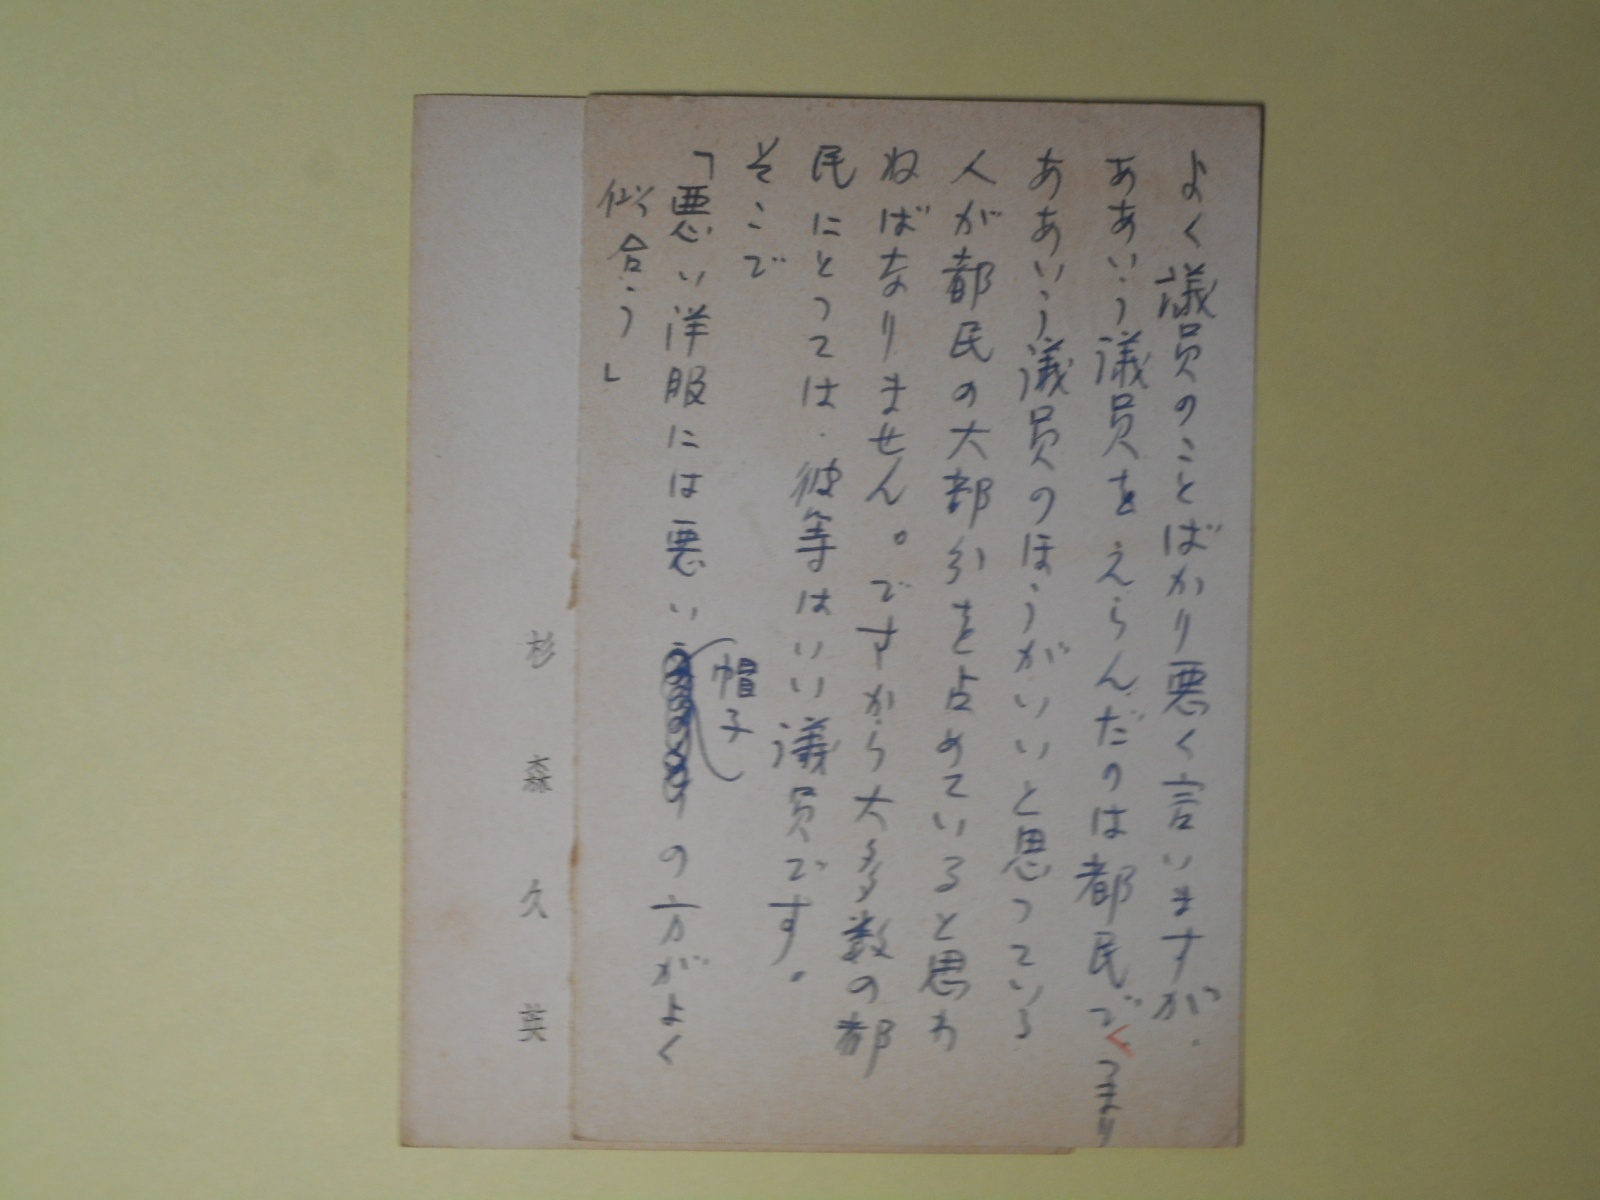 よく議員のことばかり悪く言いますが、
ああいう議員をえらんだのは都民でつまり
ああいう議員のほうがいいと思っている
人が都民の大部分を占めていると思わ
ねばなりません。ですから大多数の都
民にとっては、彼等はいい議員です。
そこで
「悪い洋服には悪い帽子の方がよく
似合う」
杉森久英